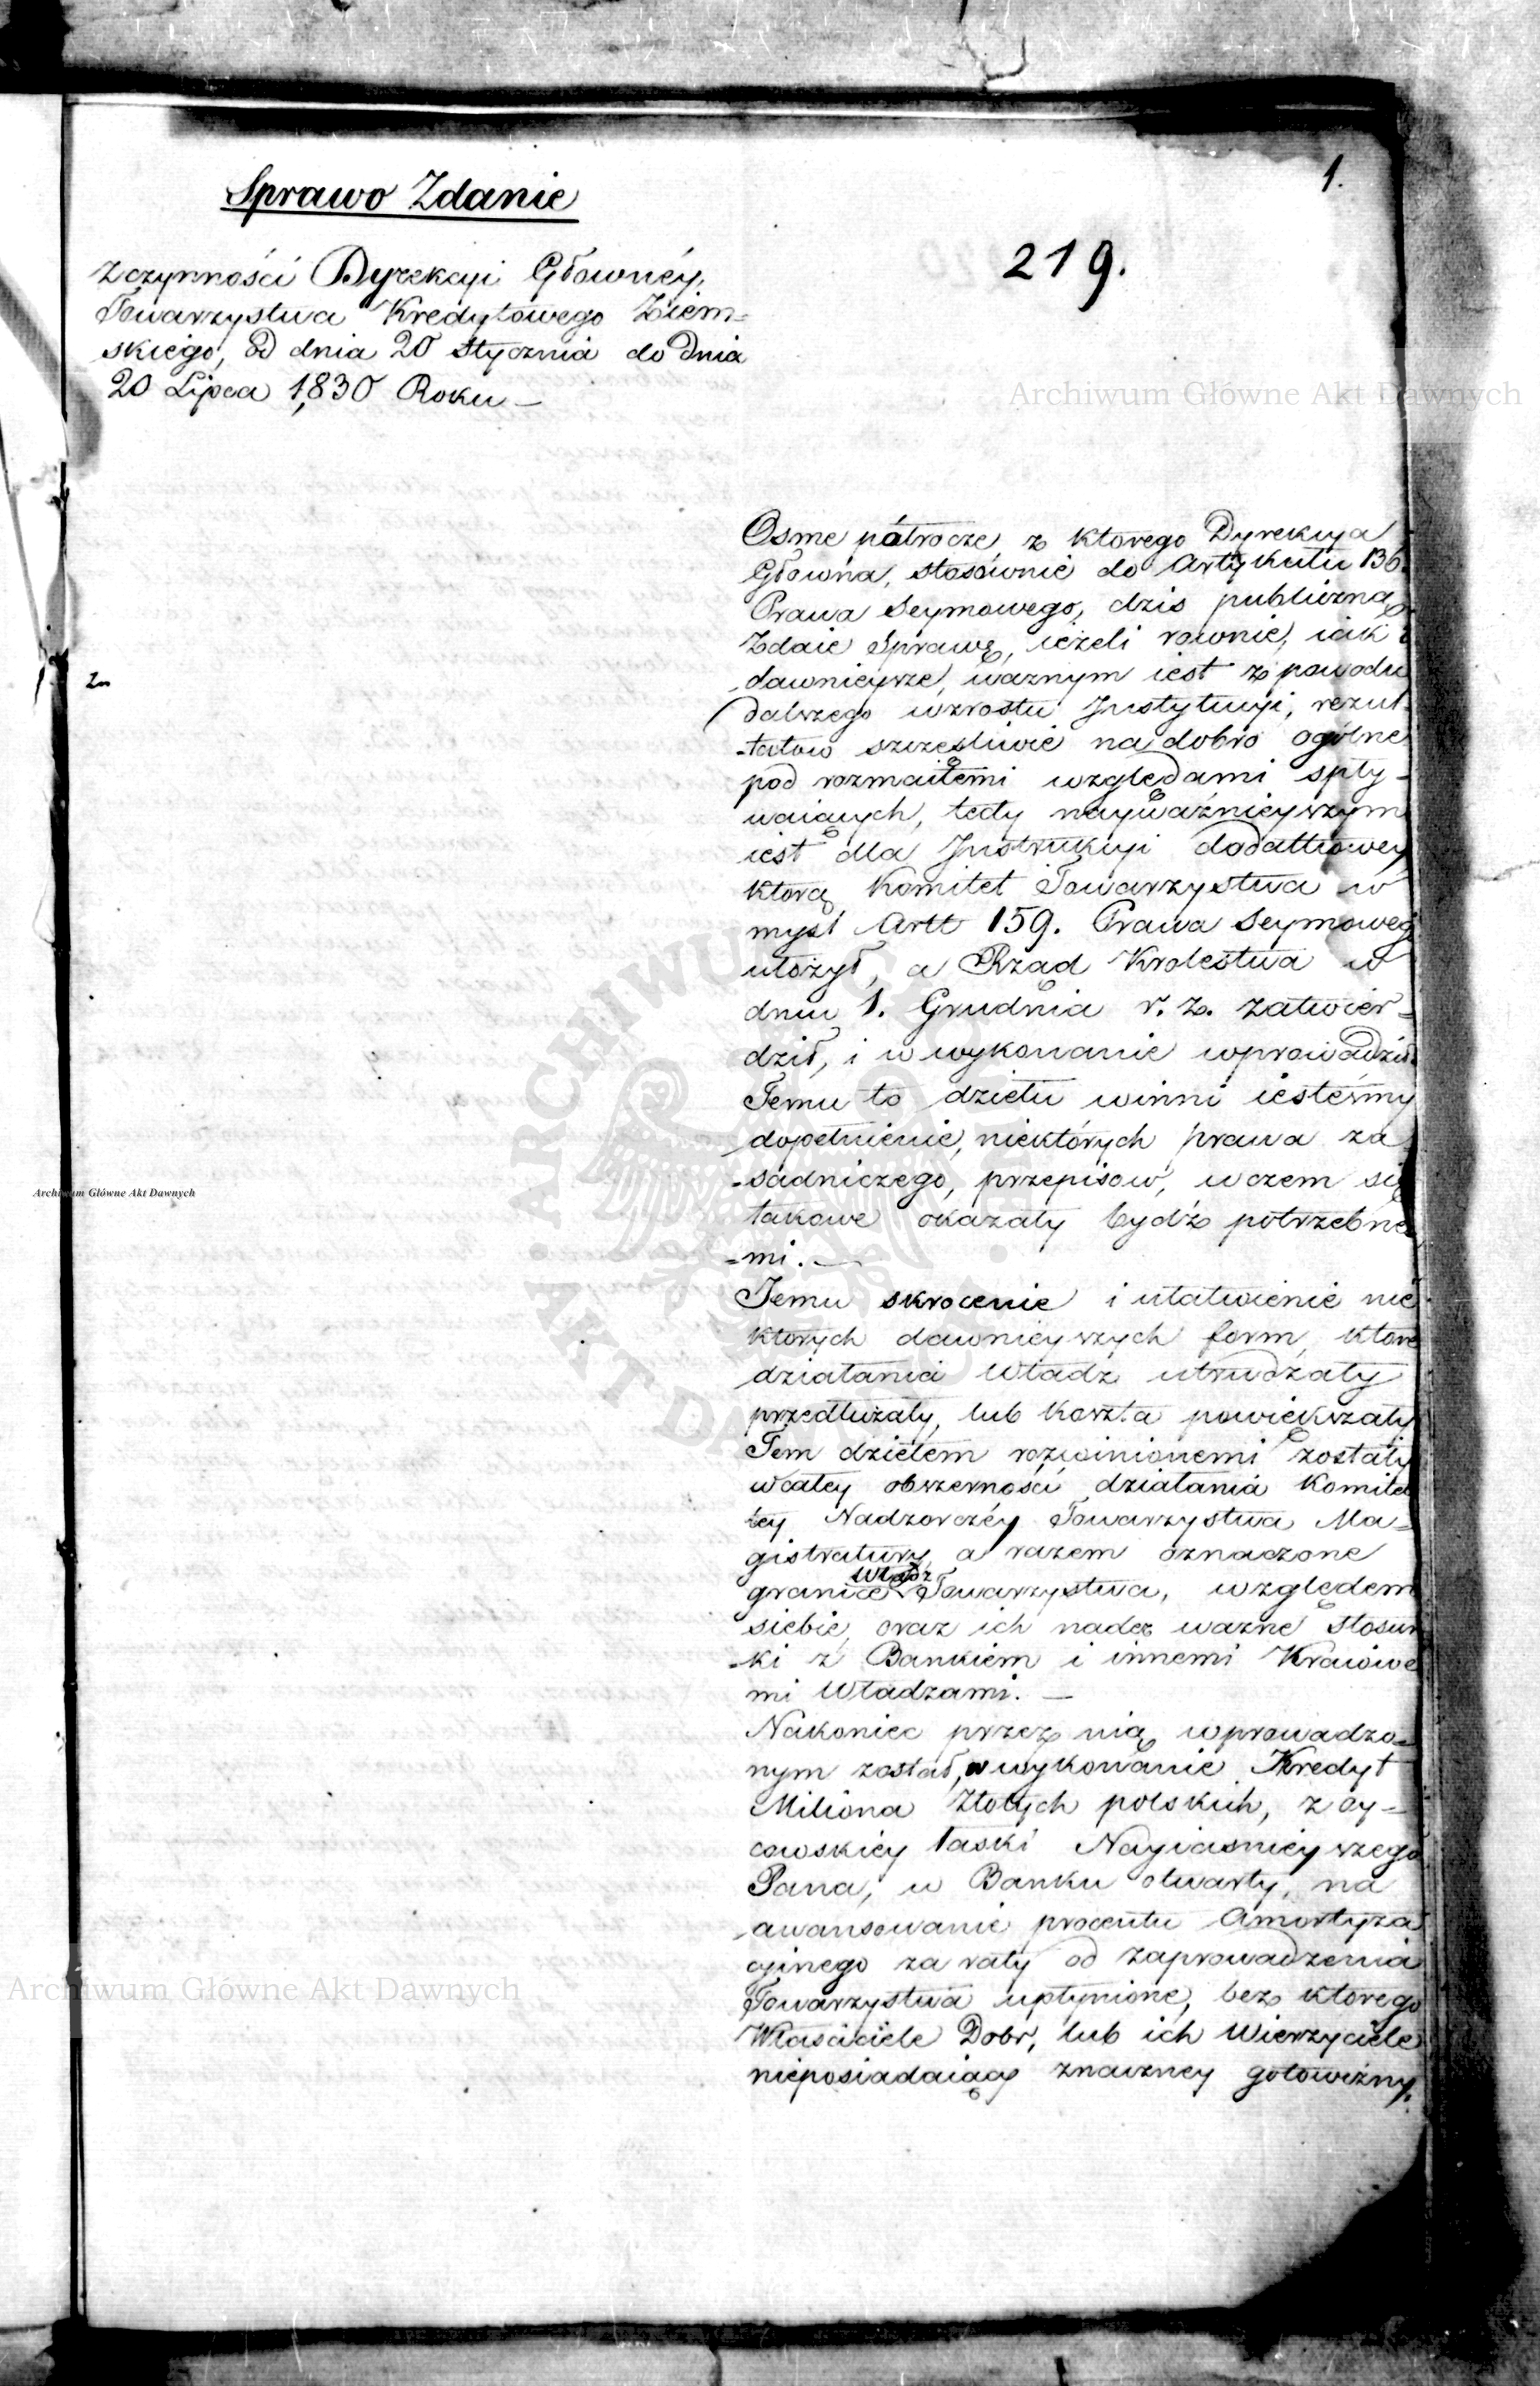 1.
Sprawo Zdanie
219.
z czynności Dyrekcyi Głownéy
Towarzystwa Kredytowego Ziem=
skiego, od dnia 20 Stycznia do dnia
20 Lipca 1830 Roku —
Archiwum Główne Akt Dawnych
Osme półrocze, z ktorego Dyrekcya
Głowna, stosownie do Artykułu 136.
Prawa Seymowego, dziś publiczną
Zdaie Sprawę, ieżeli rownie, iak i
dawnieysze, ważnym iest z powodu
dalszego wzrostu Instytucyi, rezul-
-tatow szczęśliwie na dobro ogólne
pod rozmaitemi względami spły-
waiących, tedy nayważnieyszym
iest dla Instrukcyi dodatkowey
ktorą Komitet Towarzystwa w
myśl Artt 159. Prawa Seymoweg
ułożył, a Rząd Krolestwa w
dniu 1. Grudnia r. z. zatwier-
dził, i w wykonanie wprowadził
Temu to dziełu winni iesteśmy
dopełnienie, niektórych prawa za
-sadniczego, przepisow, w czem się
takowe okazały bydź potrzebne
=mi. —
Temu skrocenie i ułatwienie nie
ktorych dawnieyszych form, ktore
działania Władz utrudzały
przedłużały, lub koszta powiększały
Tem dziełem rozwinionemi zostały
w całey obszerności działania Komite
tey Nadzorczéy Towarzystwa Ma=
gistratury, a razem oznaczone
Władz
granice Towarzystwa, względem
siebie, oraz ich nader ważne stosun
-ki z Bankiem i innemi Kraiowe
mi Władzami. —
Nakoniec przez nią wprowadzo=
nym został, w wykonanie Kredyt
Miliona Złotych polskich, z Oy=
cowskiéy łaski Nayiaśnieyszego
Pana, w Banku otwarty, na
awansowanie procentu Amortyza
cyinego za raty od zaprowadzenia
Towarzystwa upłynione, bez ktorego
Właściciele Dobr, lub ich Wierzyciele
nieposiadaiący znaczney gotowizny,
Archiwum Główne Akt Dawnych
Archiwum Główne Akt Dawnych
ARCHIWUM
AKT DAWNYCH